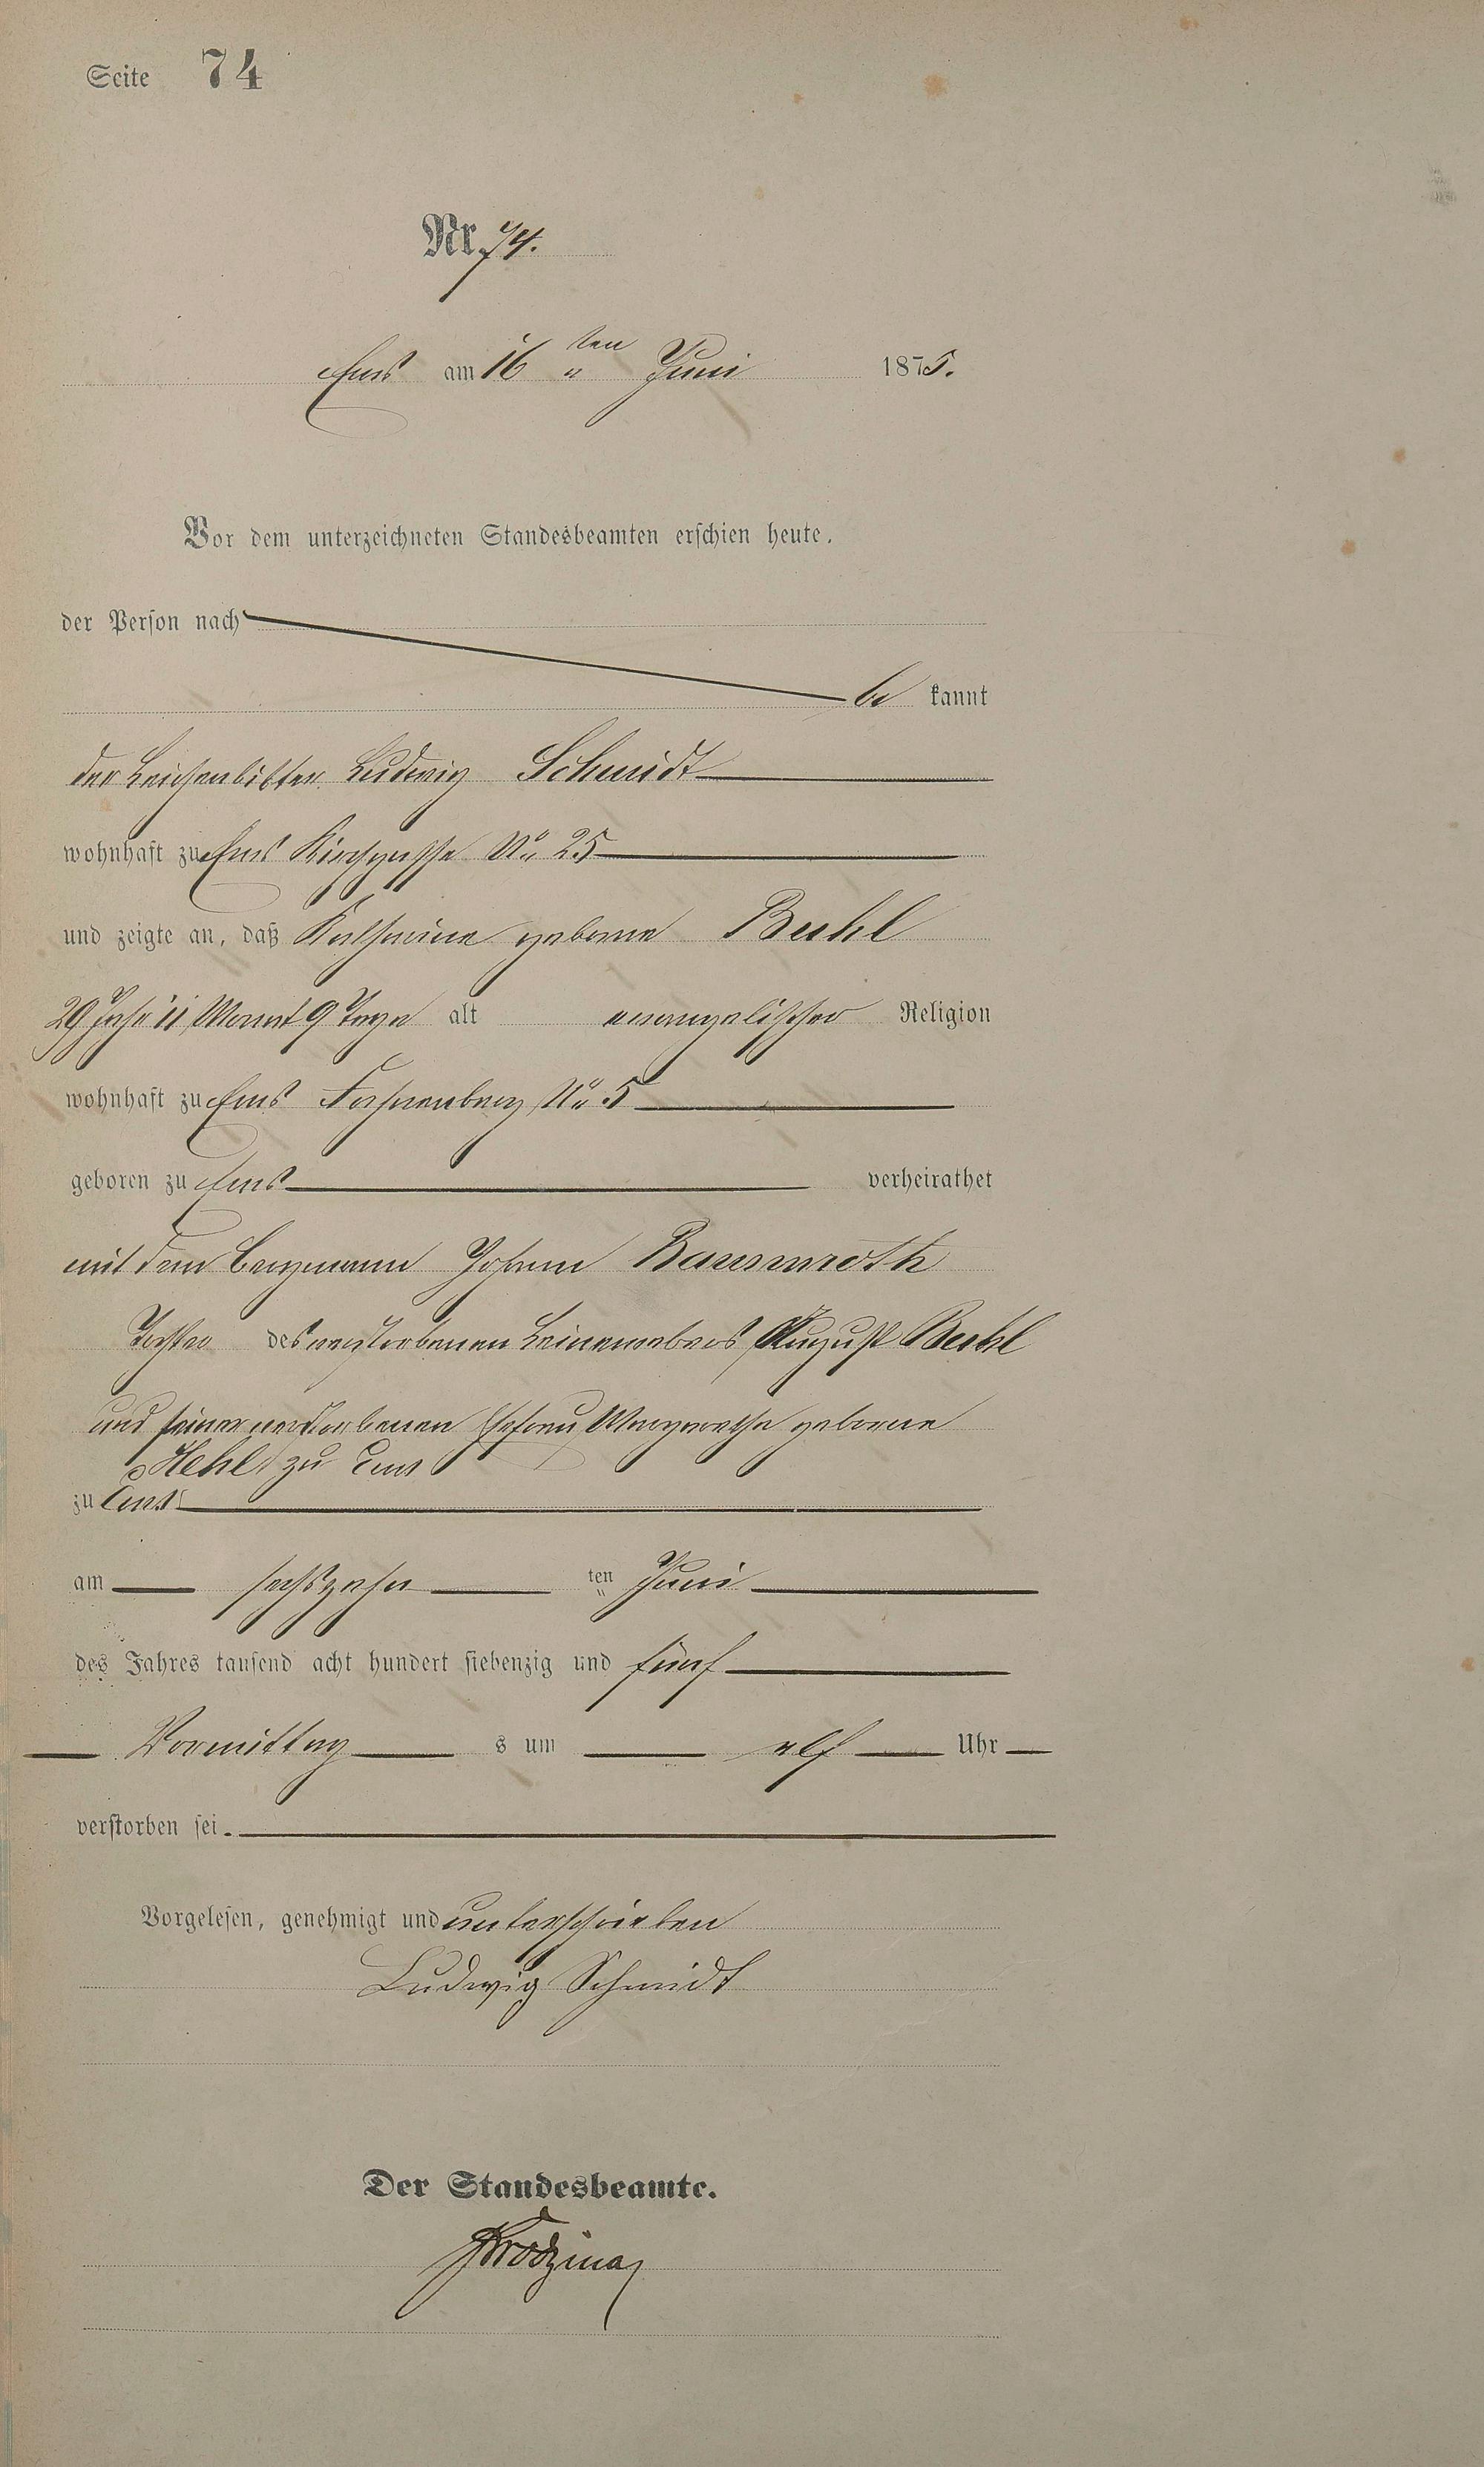 Seite 74
Nr. 74.
Ems am 16 ten Juni 1875.
Vor dem unterzeichneten Standesbeamten erschien heute,
der Person nach
be kannt
der Leichenbitter Ludwig Schmidt
wohnhaft zu Ems Kirchgasse No 25
und zeigte an, daß Katharina geborne Buhl
29 Jahr 11 Monat 9 Tage alt evangelischer Religion
wohnhaft zu Ems No 5
geboren zu Ems verheirathet
mit dem Bergmann Johann Baumroth
Tochter des verstorbenen Leinewebers August Buhl
und seiner verstorbenen Ehefrau Margarethe geborene
Hehl zu Ems
zu Ems
am sechszehn ten Juni
des Jahres tausend acht hundert siebenzig und fünf
Vormittag s um elf Uhr
verstorben sei.
Vorgelesen, genehmigt und unterschrieben
Ludwig Schmidt
Der Standesbeamte.